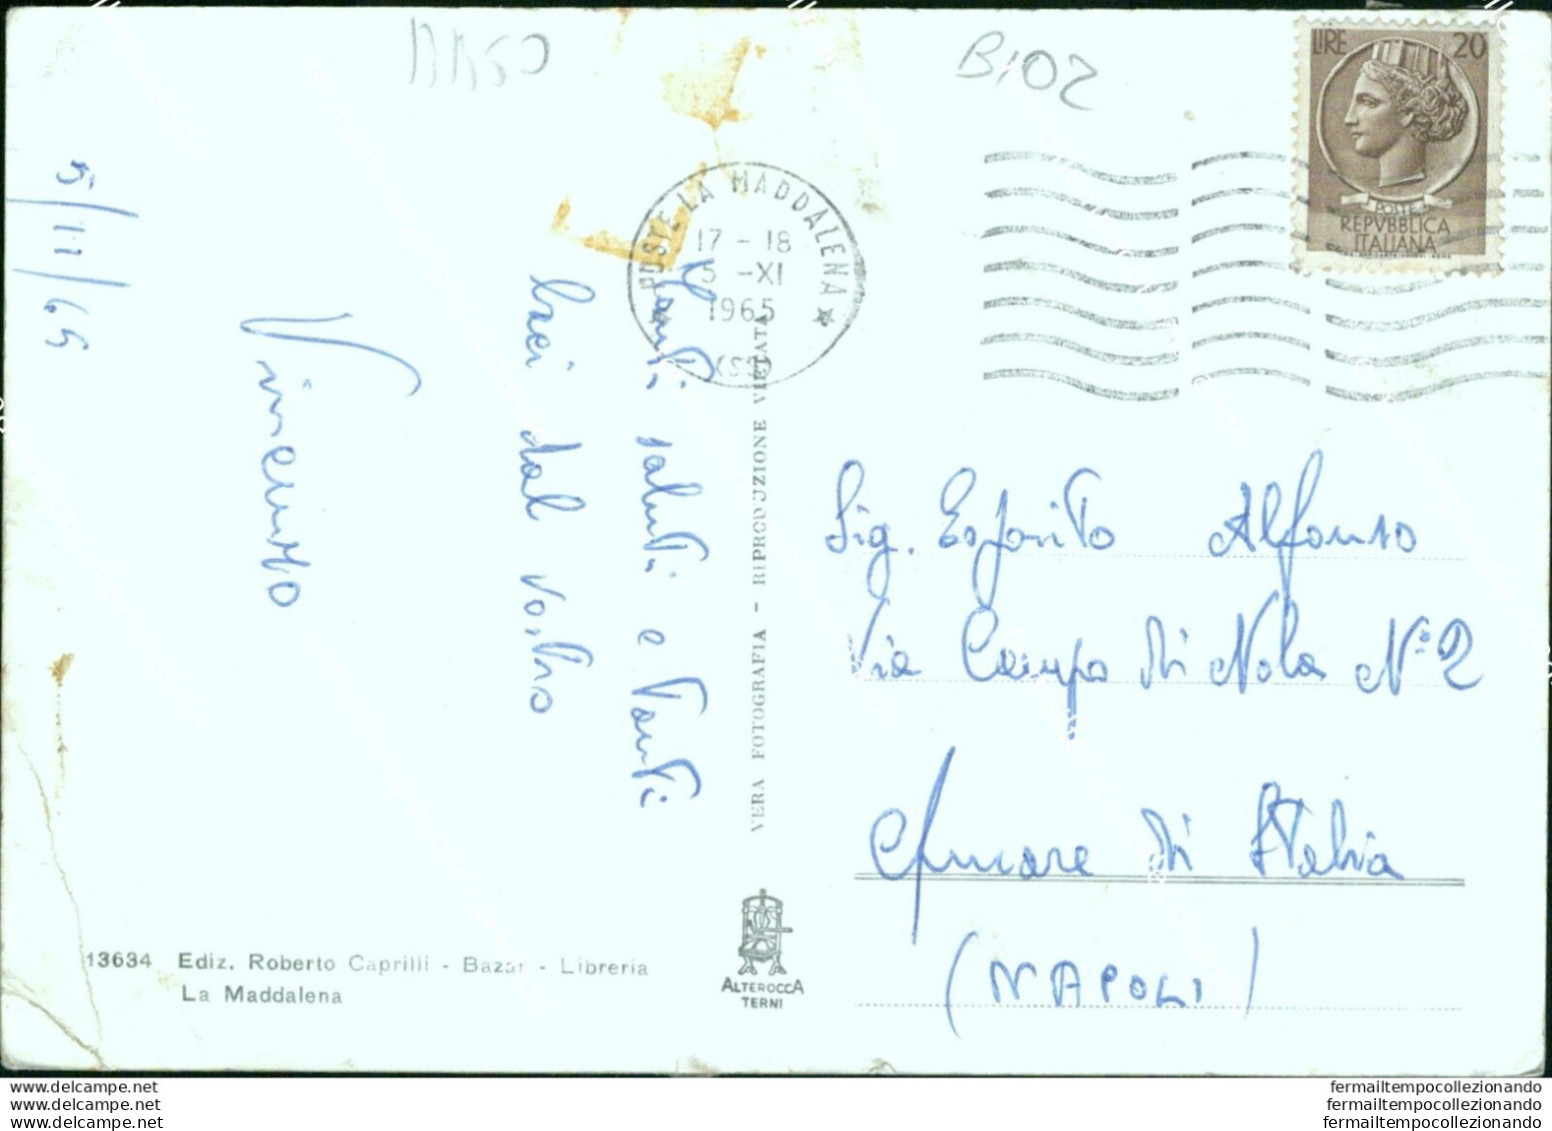 MASO
B102
LIRE 20
POSTE
REPVBBLICA
ITALIANA
POSTE LA MADDALENA
17 - 18
5 - XI
1965
(SS)
5/11/65
Tanti saluti e Tanti
baci dal vostro
Vincenzo
VERA FOTOGRAFIA - RIPRODUZIONE VIETATA
Sig. Esposito Alfonso
Via Campo di Nola N° 2
di Stabia
(NAPOLI)
13634 Ediz. Roberto Caprilli - Bazar - Libreria
La Maddalena
ALTEROCCA
TERNI
www.delcampe.net
www.delcampe.net
www.delcampe.net
fermailtempocollezionando
fermailtempocollezionando
fermailtempocollezionando